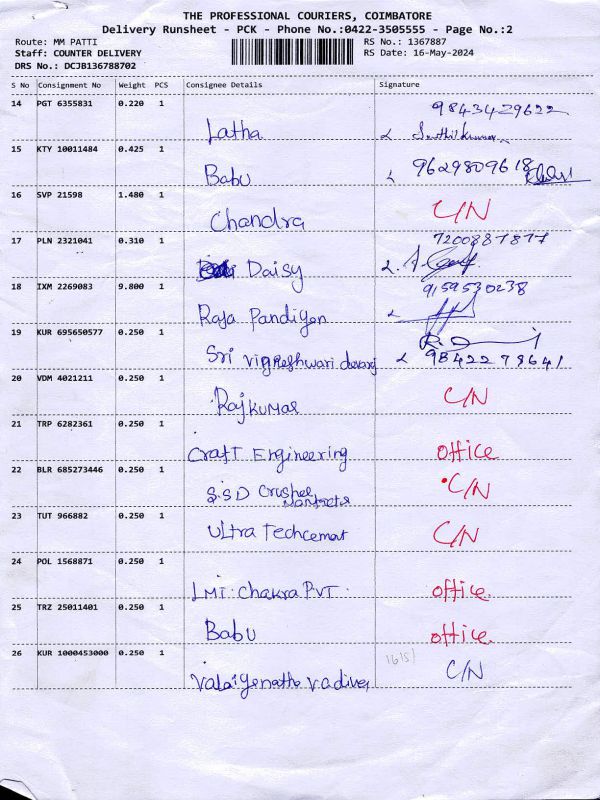 THE PROFESSIONAL COURIERS, COIMBATORE
Delivery Runsheet - PCK - Phone No.:0422-3505555 - Page No.:2
Route: MM PATTI RS No.: 1367887
Staff: COUNTER DELIVERY RS Date: 16-May-2024
DRS No.: DCJB136788702
S No Consignment No Weight PCS Consignee Details Signature
14 PGT 6355831 0.220 1 Latha 9843429622
15 KTY 10011484 0.425 1 Babu 9629809618
16 SVP 21598 1.480 1 Chandra C/N
17 PLN 2321041 0.310 1 Daisy 7200887877
18 IXM 2269083 9.800 1 Raja Pandiyen 9159530238
19 KUR 695650577 0.250 1 Sri Vigneshwari 9842278641
20 VDM 4021211 0.250 1 Rajkumar C/N
21 TRP 6282361 0.250 1 Craft Engineering office
22 BLR 685273446 0.250 1 S.S.D Crusher C/N
23 TUT 966882 0.250 1 Ultra Techcement C/N
24 POL 1568871 0.250 1 LMT. Chakra PVT. office
25 TRZ 25011401 0.250 1 Babu office
26 KUR 1000453000 0.250 1 C/N